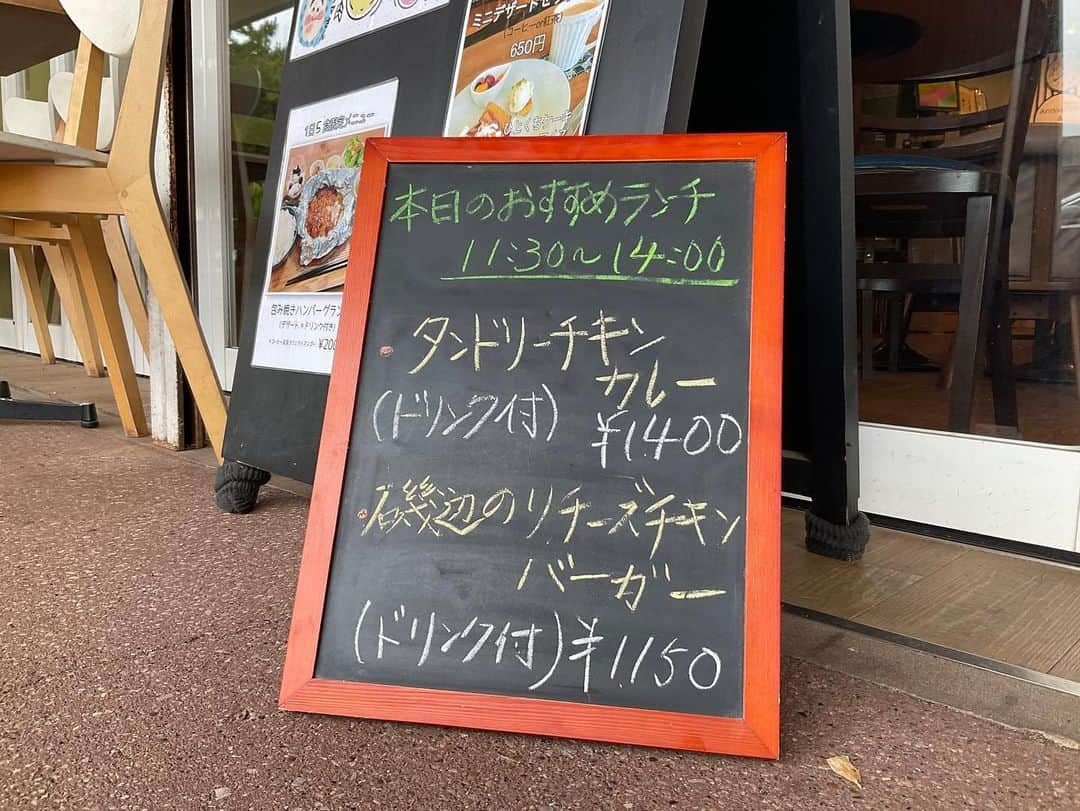 ミニデザートセッ
(コーヒーor紅茶)
650円
ひとくちケーキ
1日5食限定メニュー
包み焼きハンバーグラン
(デザート、ドリンク付き)
¥200
本日のおすすめランチ
11:30〜14:00
・タンドリーチキン
カレー
(ドリンク付) ¥1.400
・磯辺のりチーズチキン
バーガー
(ドリンク付) ¥1.150